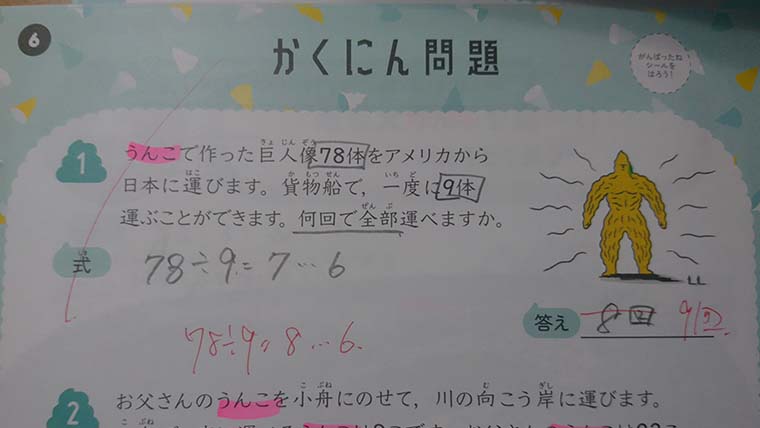 6
かくにん問題
がんばったね
シールを
はろう!
1
うんこで作った巨人像78体をアメリカから
日本に運びます。貨物船で,一度に9体
運ぶことができます。何回で全部運べますか。
式
78÷9=7…6
78÷9=8…6
答え 8回 9回
2
お父さんのうんこを小舟にのせて,川の向こう岸に運びます。